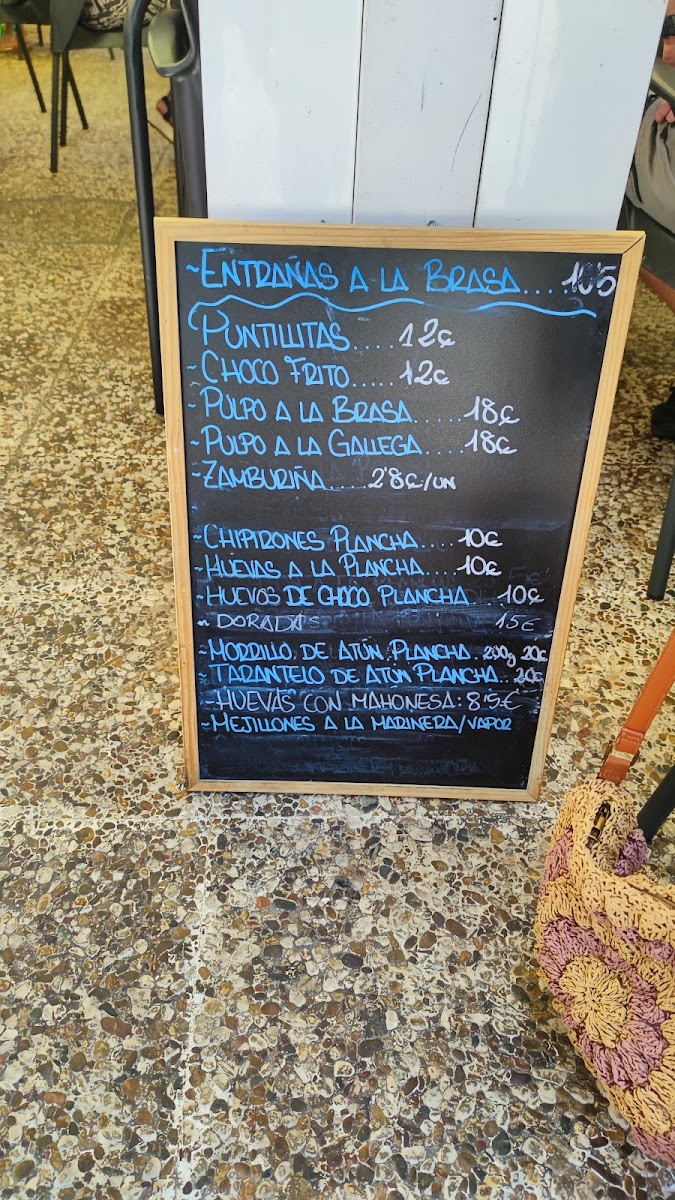 ~ENTRAÑAS A LA BRASA....10'5
PUNTILLITAS....12€
-CHOCO FRITO.....12€
-PULPO A LA BRASA......18€
-PULPO A LA GALLEGA....18€
-ZAMBURIÑA.....2'8€/UN
-CHIPIRONES PLANCHA....10€
-HUEVAS A LA PLANCHA....10€
-HUEVOS DE CHOCO PLANCHA...10€
- DORADAS 15€
-MORRILLO DE ATÚN PLANCHA.200g 20€
-TARANTELO DE ATÚN PLANCHA..20€
-HUEVAS CON MAHONESA: 8'5€
-MEJILLONES A LA MARINERA/VAPOR